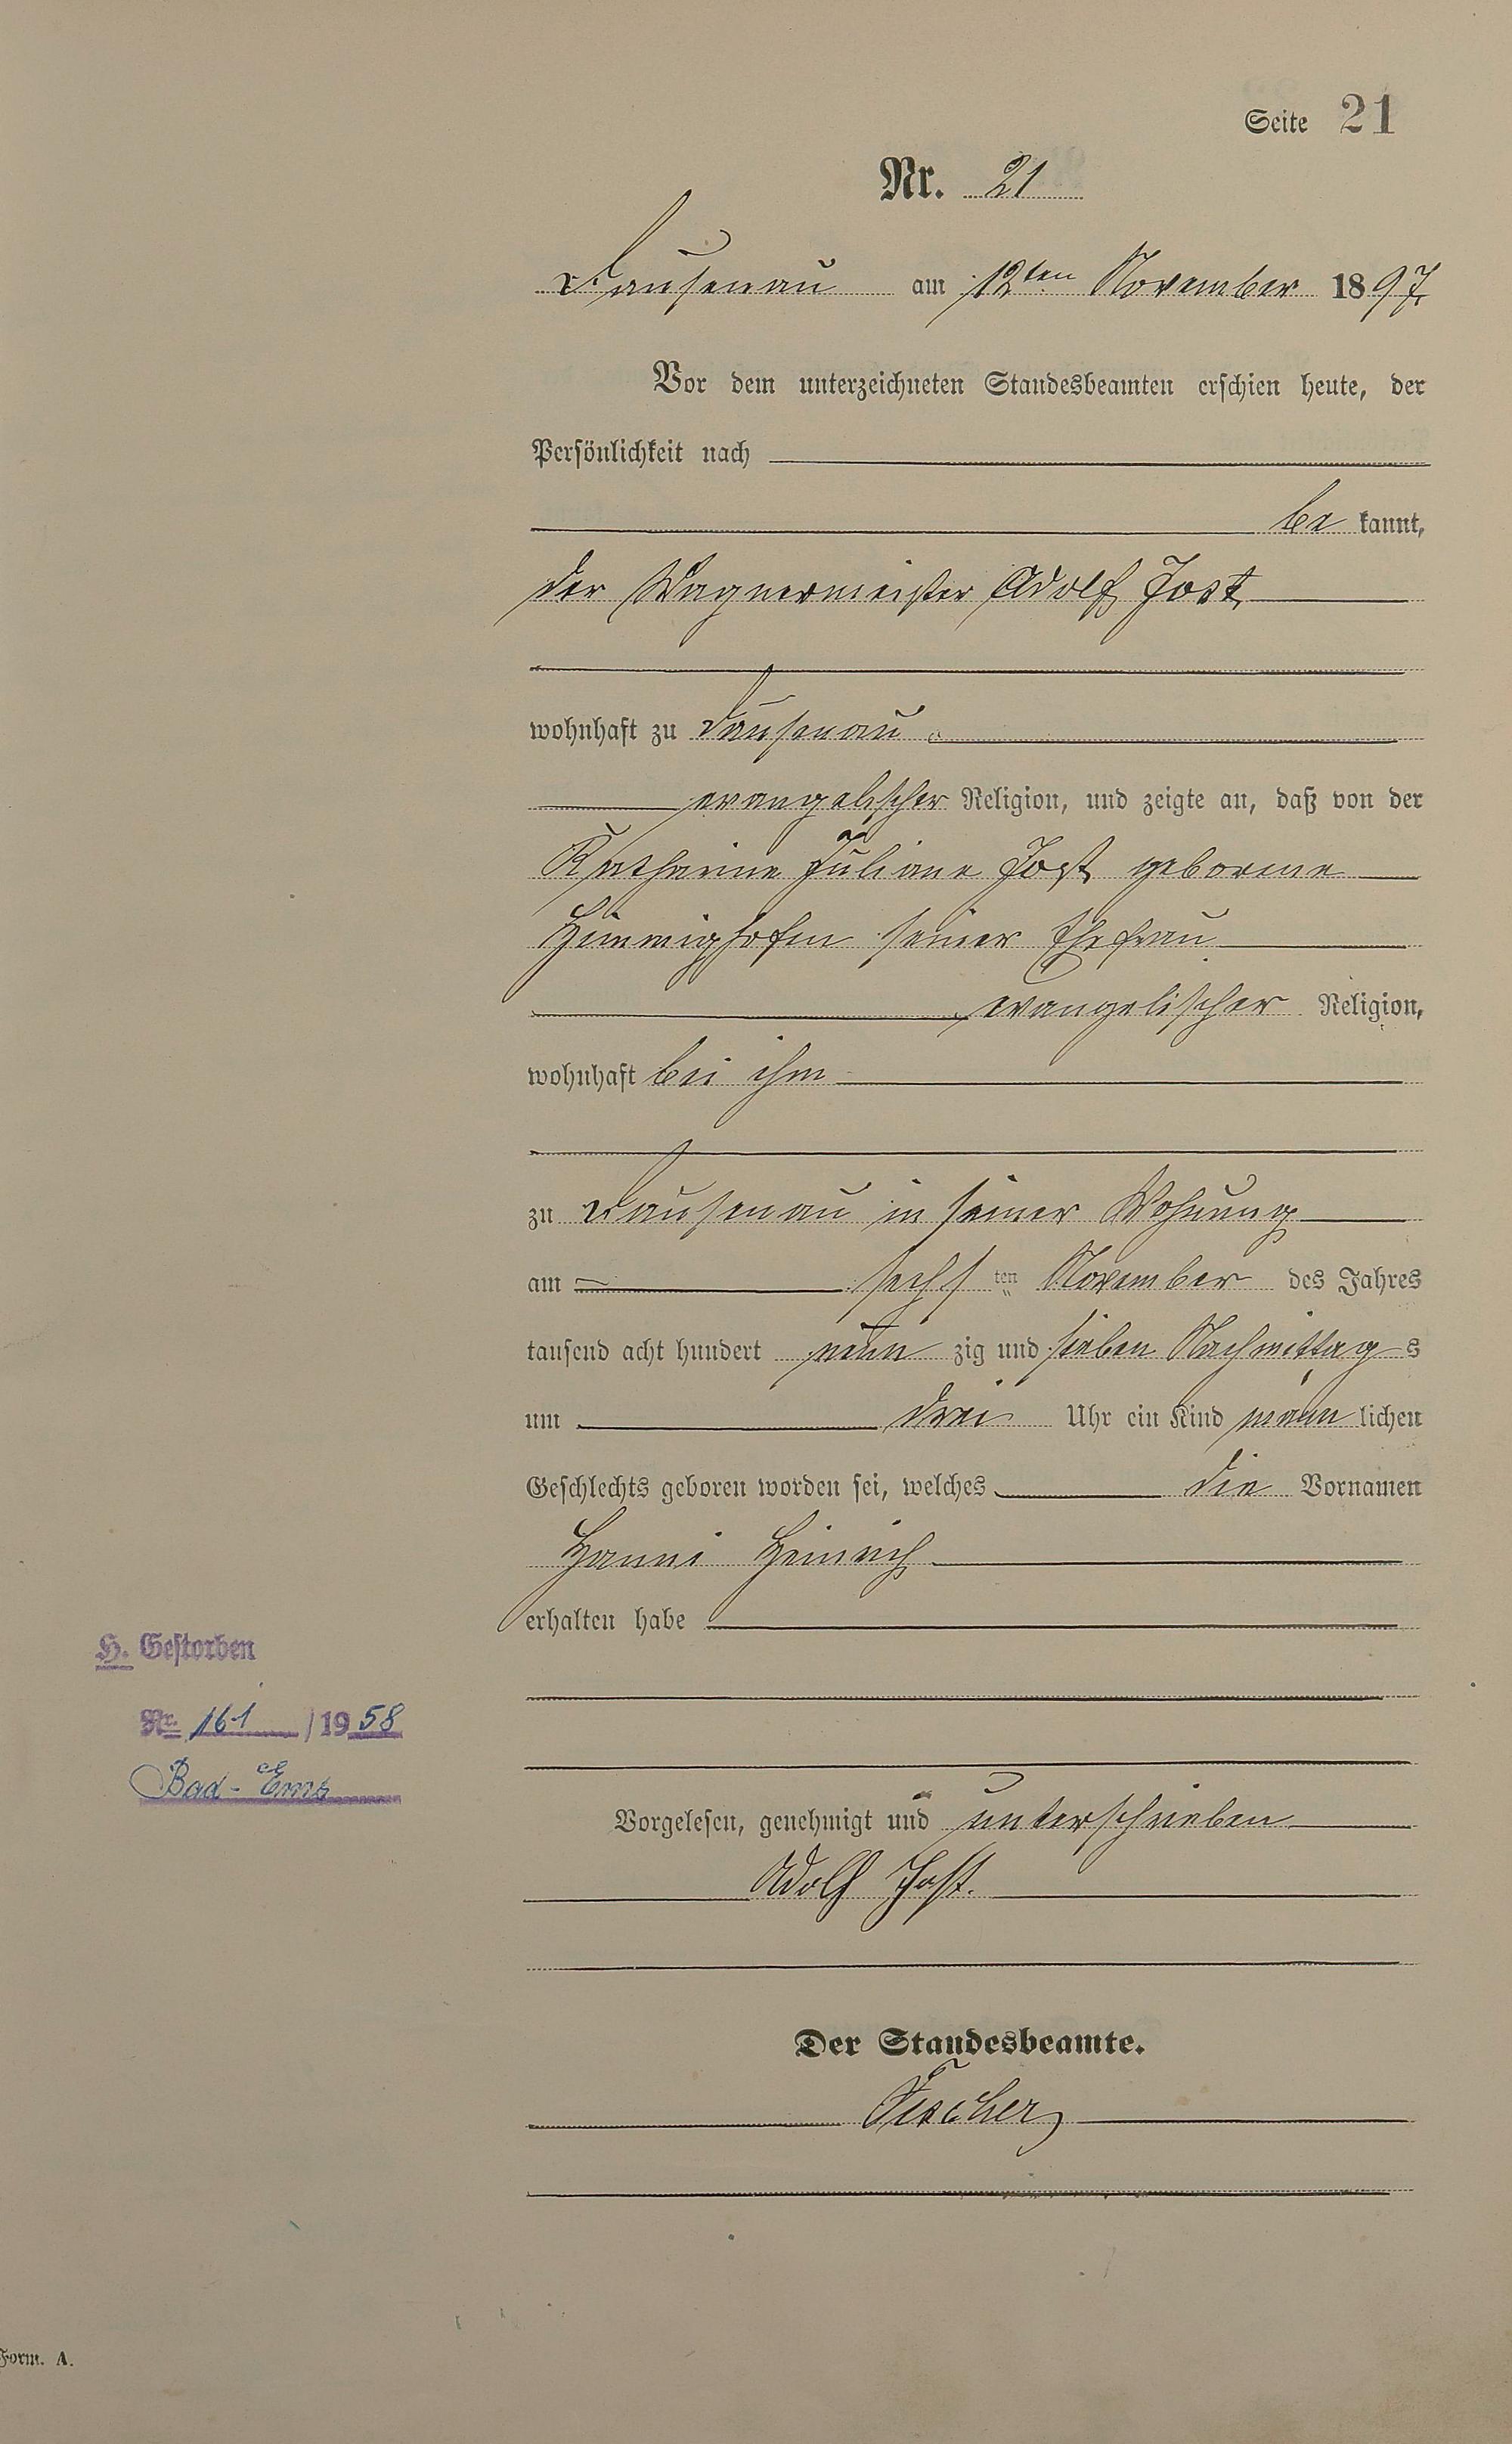 Seite 21
Nr. 21
Dausenau am 12ten November 1897.
Vor dem unterzeichneten Standesbeamten erschien heute, der
Persönlichkeit nach
be kannt,
der Wagnermeister Adolf Jost
wohnhaft zu Dausenau
evangelischer Religion, und zeigte an, daß von der
Katharine Juliane Jost geborene
Himmighofen seiner Ehefrau
evangelischer Religion,
wohnhaft bei ihm
zu Dausenau in seiner Wohnung
am sechs ten November des Jahres
tausend acht hundert neun zig und sieben Nachmittag s
um drei Uhr ein Kind männ lichen
Geschlechts geboren worden sei, welches die Vornamen
Heinrich
erhalten habe
H. Gestorben
Nr. 161 /1958
Bad-Ems
Vorgelesen, genehmigt und unterschrieben
Adolf Jost.
Der Standesbeamte.
Fischer
Form. A.